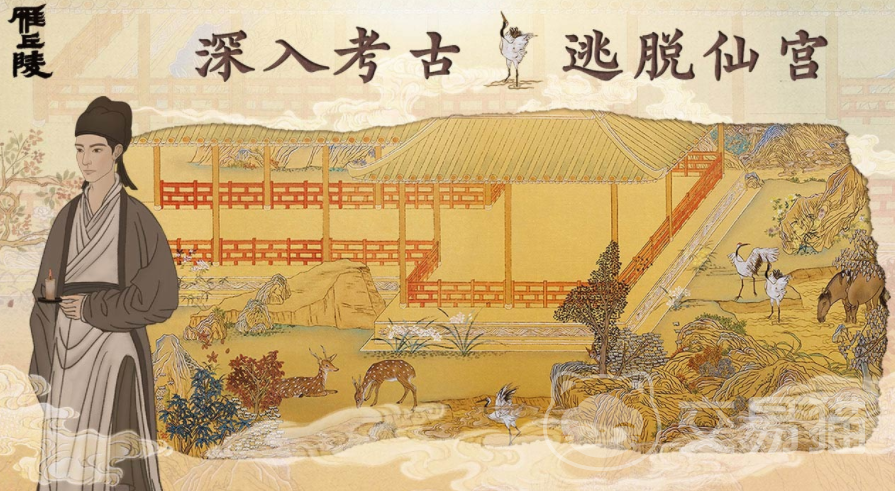 雁丘陵
深入考古 逃脱仙宫
交易猫